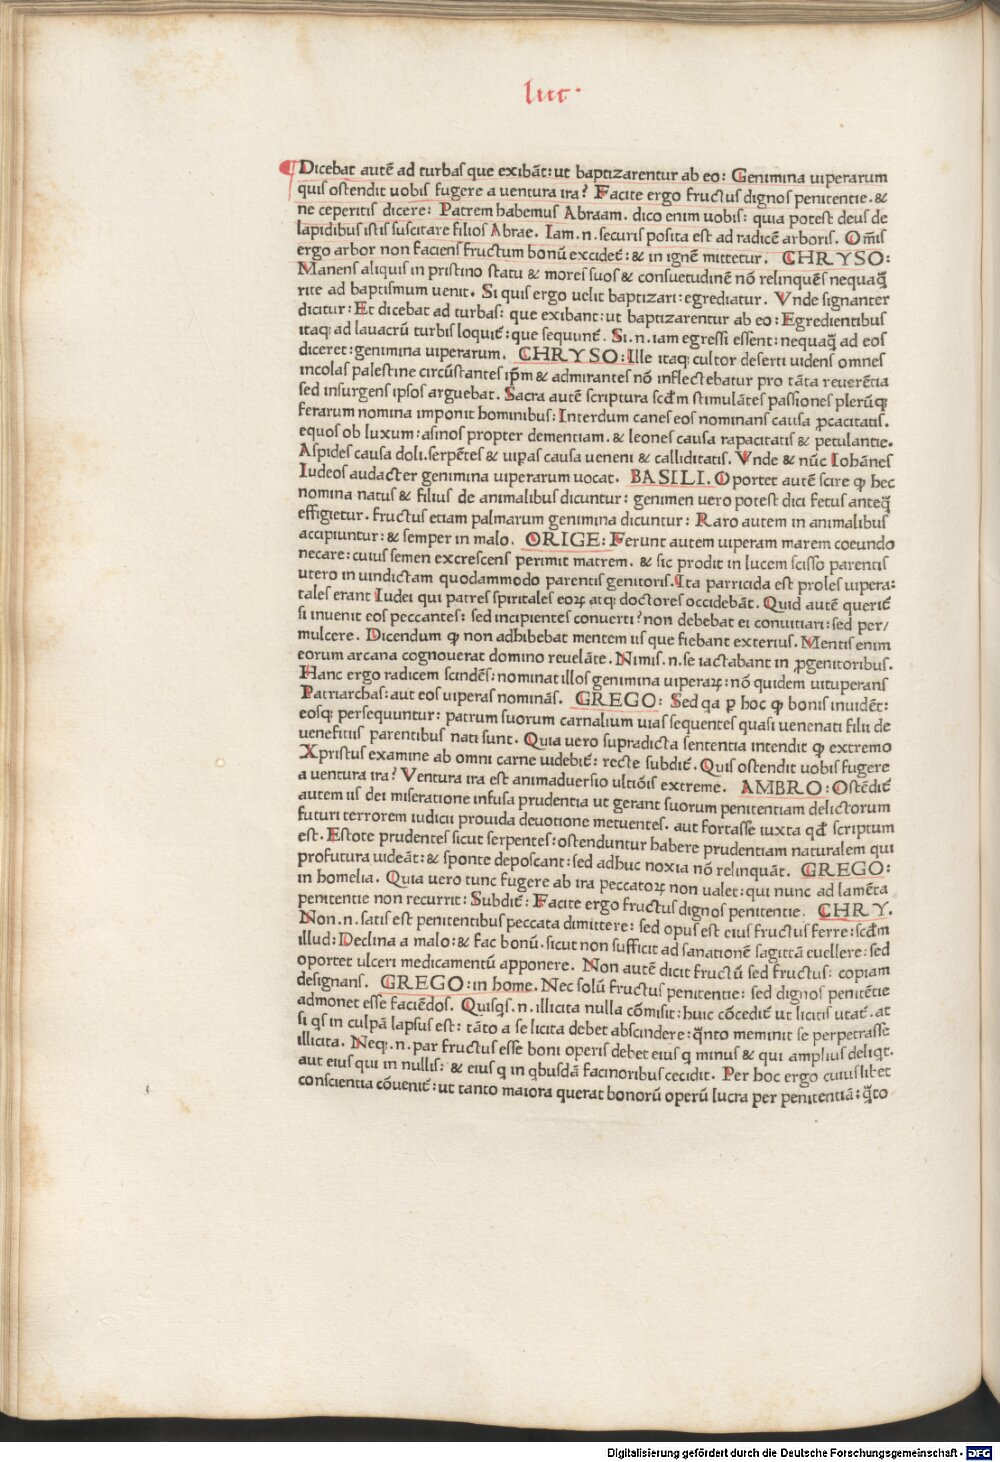 luc·
Dicebat autē ad turbas que exibāt: ut baptizarentur ab eo: Genimina uiperarum
quis ostendit uobis fugere a uentura ira? Facite ergo fructus dignos penitentie. &
ne ceperitis dicere: Patrem habemus Abraam. dico enim uobis: quia potest deus de
lapidibus istis suscitare filios Abrae. Iam .n. securis posita est ad radicē arboris. Om̄is
ergo arbor non faciens fructum bonū excidet̄: & in ignē mittetur. CHRYSO:
Manens aliquis in pristino statu & mores suos & consuetudinē nō relinquēs nequaq̄
rite ad baptismum uenit. Si quis ergo uelit baptizari: egrediatur. Vnde signanter
dicitur: Et dicebat ad turbas: que exibant: ut baptizarentur ab eo: Egredientibus
itaq; ad lauacrū turbis loquit̄: que sequunt̄. Si .n. iam egressi essent: nequaq̄ ad eos
diceret: genimina uiperarum. CHRYSO: Ille itaq; cultor deserti uidens omnes
incolas palestine circūstantes ip̄m & admirantes nō inflectebatur pro tāta reuerētia
sed insurgens ipsos arguebat. Sacra autē scriptura scd̄m stimulātes passiones plerūq;
ferarum nomina imponit hominibus: Interdum canes eos nominans causa ꝓcacitatis.
equos ob luxum: asinos propter dementiam. & leones causa rapacitatis & petulantie.
Aspides causa doli. serpētes & uip̄as causa ueneni & calliditatis. Vnde & nūc Iohānes
Iudeos audacter genimina uiperarum uocat. BASILI. Oportet autē scire ꝙ hec
nomina natus & filius de animalibus dicuntur: genimen uero potest dici fetus anteq̄
effigietur. fructus etiam palmarum genimina dicuntur: Raro autem in animalibus
accipiuntur: & semper in malo. ORIGE: Ferunt autem uiperam marem coeundo
necare: cuius semen excrescens perimit matrem. & sic prodit in lucem scisso parentis
utero in uindictam quodammodo parentis genitoris. Ita parricida est proles uipera:
tales erant Iudei qui patres spiritales eoꝝ atq; doctores occidebāt. Quid autē querit̄
si inuenit eos peccantes: sed incipientes conuerti? non debebat ei conuitiari: sed per/
mulcere. Dicendum ꝙ non adhibebat mentem iis que fiebant exterius. Mentis enim
eorum arcana cognouerat domino reuelāte. Nimis .n. se iactabant in ꝓgenitoribus.
Hanc ergo radicem scindēs: nominat illos genimina uiperaꝝ: nō quidem uituperans
Patriarchas: aut eos uiperas nominās. GREGO: Sed qa ꝑ hoc ꝙ bonis inuidēt:
eosq; persequuntur: patrum suorum carnalium uias sequentes quasi uenenati filii de
uenefitiis parentibus nati sunt. Quia uero supradicta sententia intendit ꝙ extremo
Xpristus examine ab omni carne uidebit̄: recte subdit̄. Quis ostendit uobis fugere
a uentura ira? Ventura ira est animaduersio ultiōis extreme. AMBRO: Ostēdit̄
autem iis dei miseratione infusa prudentia ut gerant suorum penitentiam delictorum
futuri terrorem iudicii prouida deuotione metuentes. aut fortasse iuxta qd̄ scriptum
est. Estote prudentes sicut serpentes: ostenduntur habere prudentiam naturalem qui
profutura uideāt: & sponte deposcant: sed adhuc noxia nō relinquāt. GREGO:
in homelia. Quia uero tunc fugere ab ira peccatoꝝ non ualet: qui nunc ad lamēta
penitentie non recurrit: Subdit̄: Facite ergo fructus dignos penitentie. CHRY.
Non .n. satis est penitentibus peccata dimittere: sed opus est eius fructus ferre: scd̄m
illud: Declina a malo: & fac bonū. sicut non sufficit ad sanationē sagittā euellere: sed
oportet ulceri medicamentū apponere. Non autē dicit fructū sed fructus: copiam
designans. GREGO: in home. Nec solū fructus penitentie: sed dignos penitētie
admonet esse faciēdos. Quisqs .n. illicita nulla cōmisit: huic cōcedit̄ ut licitis utat̄. at
si qs in culpā lapsus est: tāto a se licita debet abscindere: q̄nto meminit se perpetrasse
illicita. Neq; .n. par fructus esse boni operis debet eius q minus & qui amplius deliqt.
aut eius qui in nullis: & eius q in qbusdā facinoribus cecidit. Per hoc ergo cuiuslibet
conscientia cōuenit̄: ut tanto maiora querat bonorū operū lucra per penitentiā: q̄to
Digitalisierung gefördert durch die Deutsche Forschungsgemeinschaft - DFG